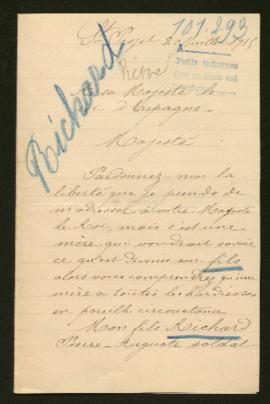 101,293
St Projet 2 Juillet 1915
Pedir informes
Richard
Pierre
A sa Majesté
d'Espagne
Majesté
Pardonnez moi la
liberté que je prends de
m'adresser à votre Majesté
le Roi, mais c'est une
mère qui voudrait savoir
ce qu'est devenu son fils
alors vous comprendrez qu'une
mère a toutes les hardiesses
en pareille circonstance
Mon fils Richard
Pierre-Auguste soldat